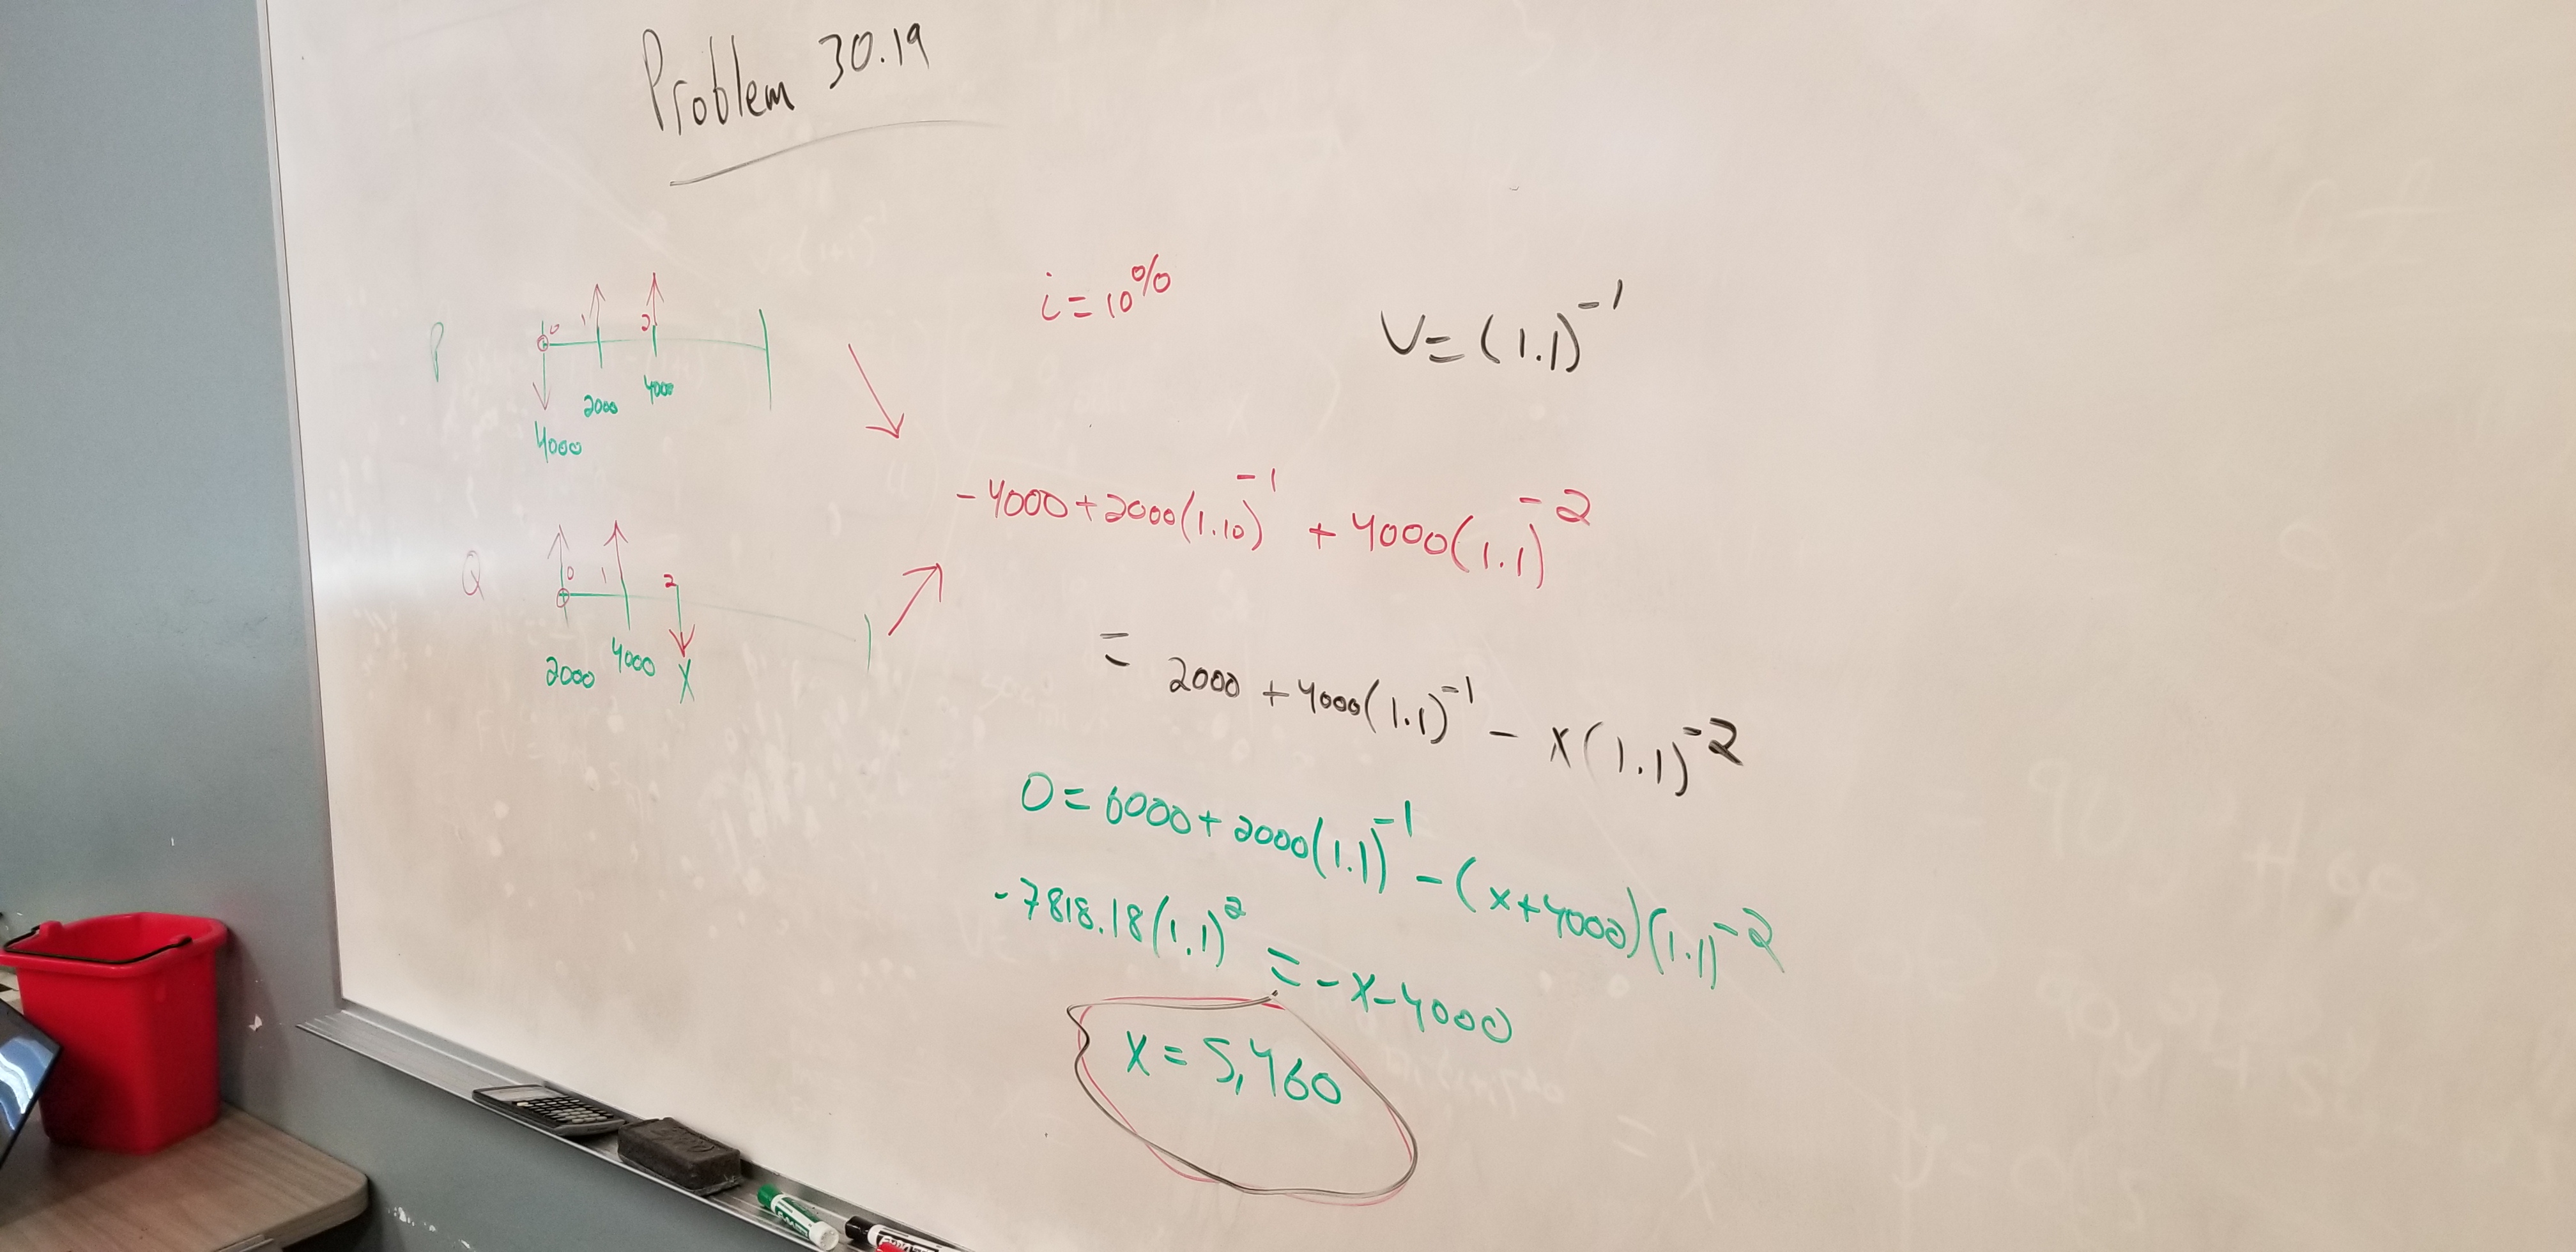 Problem 30.19
i = 10%
V = (1.1)⁻¹
P
0 1 2
4000 2000 4000
Q
0 1 2
2000 4000 X
-4000 + 2000(1.10)⁻¹ + 4000(1.1)⁻²
= 2000 + 4000(1.1)⁻¹ - x(1.1)⁻²
0 = 6000 + 2000(1.1)⁻¹ - (x+4000)(1.1)⁻²
-7818.18(1.1)² = -x-4000
x = 5,460